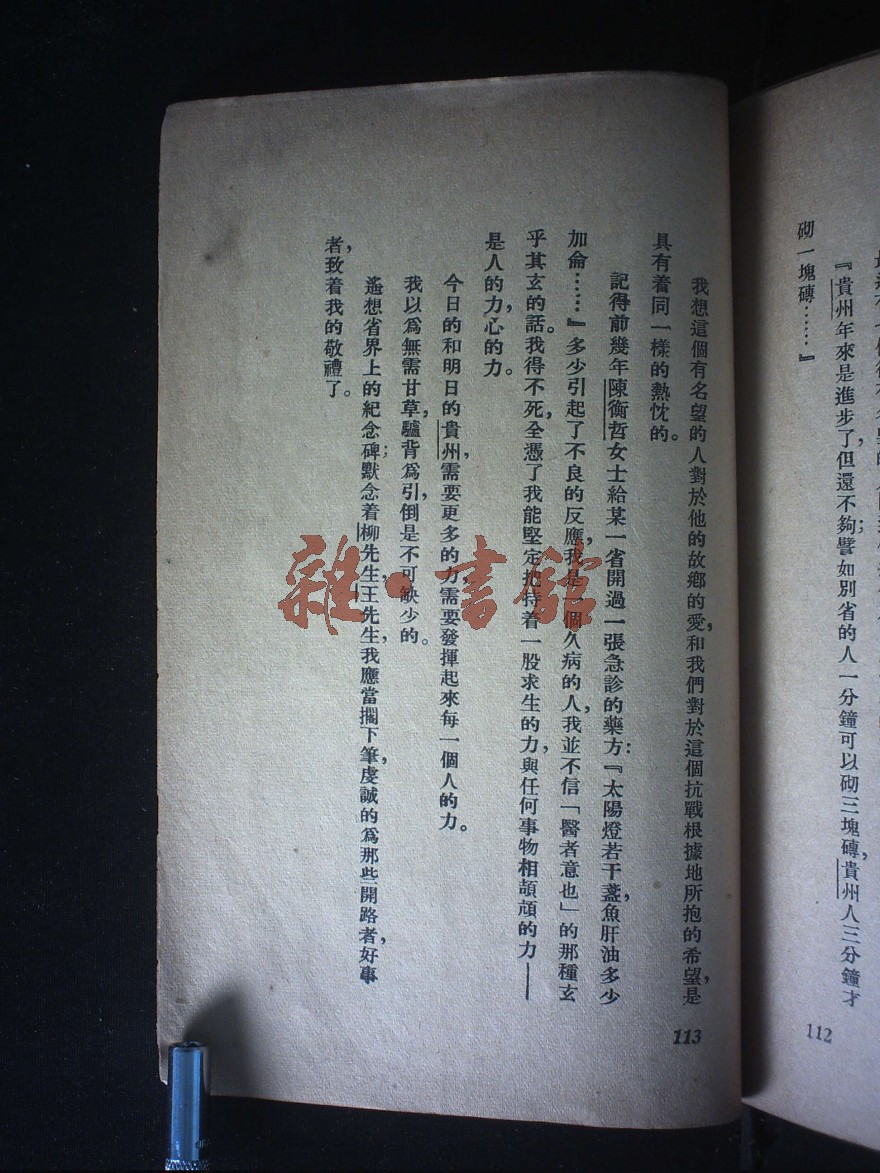 『貴州年來是進步了，但還不夠；譬如別省的人一分鐘可以砌三塊磚，貴州人三分鐘才
砌一塊磚……』
112
我想這個有名望的人對於他的故鄉的愛，和我們對於這個抗戰根據地所抱的希望，是
具有着同一樣的熱忱的。
記得前幾年陳衡哲女士給某一省開過一張急診的藥方：『太陽燈若干盞，魚肝油多少
加侖……』多少引起了不良的反應，我是一個久病的人，我並不信「醫者意也」的那種玄
乎其玄的話。我得不死，全憑了我能堅定把持着一股求生的力，與任何事物相頡頏的力——
是人的力，心的力。
今日的和明日的貴州，需要更多的力，需要發揮起來每一個人的力。
我以爲無需甘草，驢背爲引，倒是不可缺少的。
遙想省界上的紀念碑；默念着柳先生，王先生，我應當擱下筆，虔誠的爲那些開路者，好事
者，致着我的敬禮了。
113
雜·書館